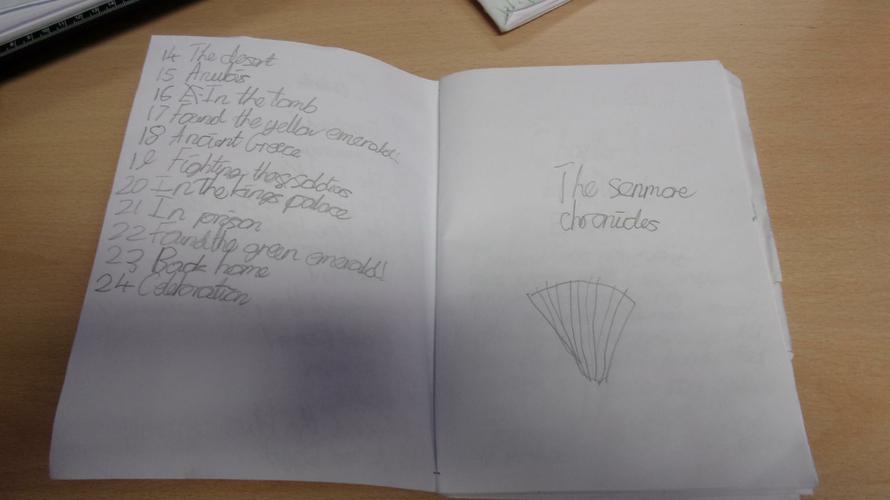 14 The desert
15 Anubis
16 In the tomb
17 Found the yellow emerald!
18 Ancient Greece
19 Fighting the soldiers
20 In the kings palace
21 In prison
22 Found the green emerald!
23 Back home
24 Celebration
The senmore
chronicles